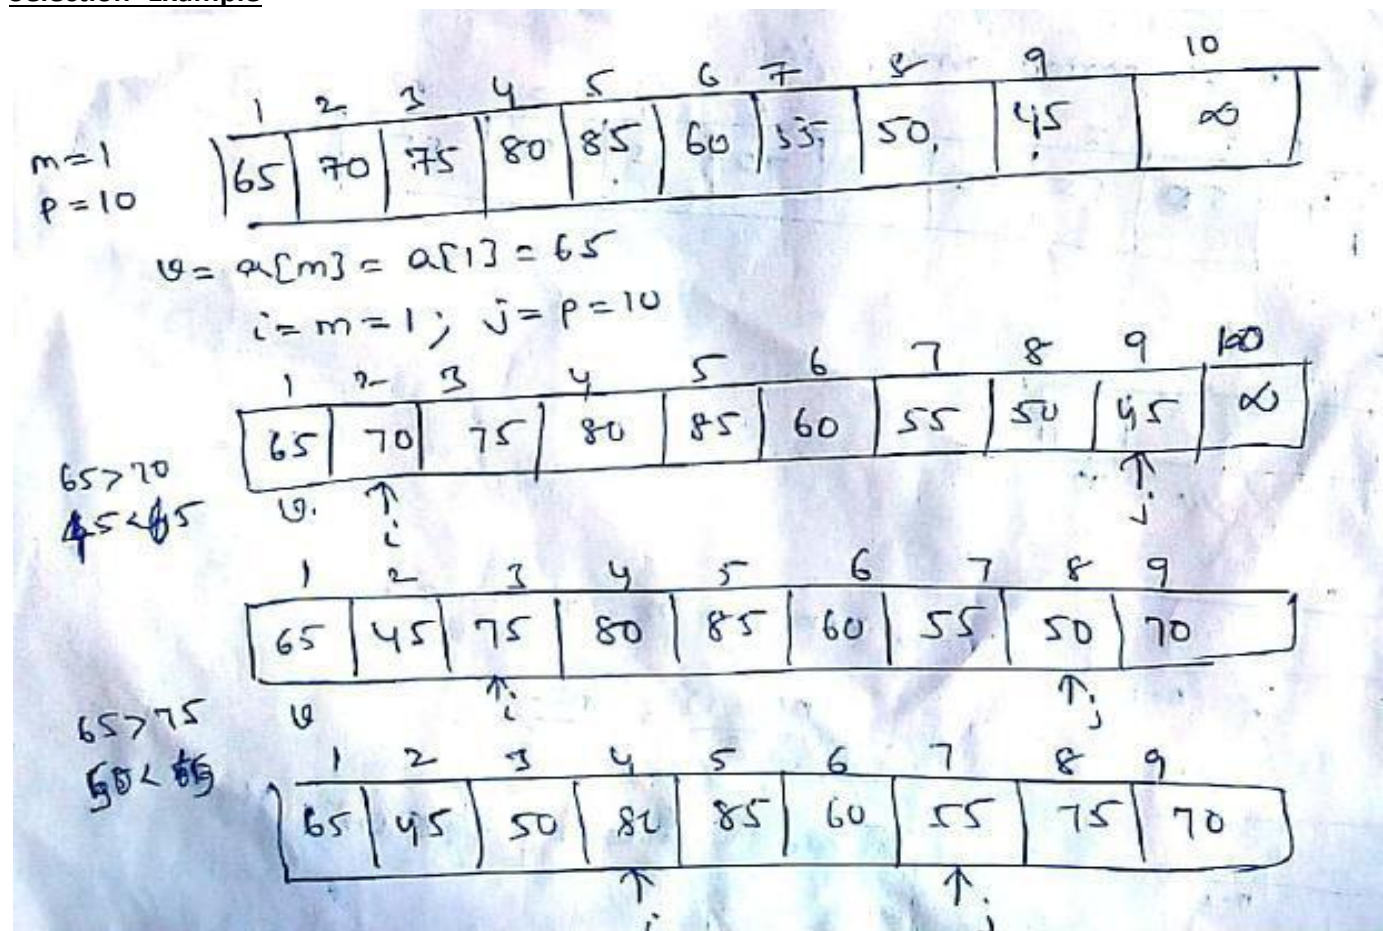 Selection Example
1 2 3 4 5 6 7 8 9 10
m=1
p=10
65 70 75 80 85 60 55 50 45 ∞
v= a[m] = a[1] = 65
i=m=1; j=p=10
1 2 3 4 5 6 7 8 9 10
65 70 75 80 85 60 55 50 45 ∞
65>70
45<65
v. ↑ ↑
i j
1 2 3 4 5 6 7 8 9
65 45 75 80 85 60 55 50 70
v ↑i ↑j
65>75
50<65
1 2 3 4 5 6 7 8 9
65 45 50 80 85 60 55 75 70
↑ ↑
i j